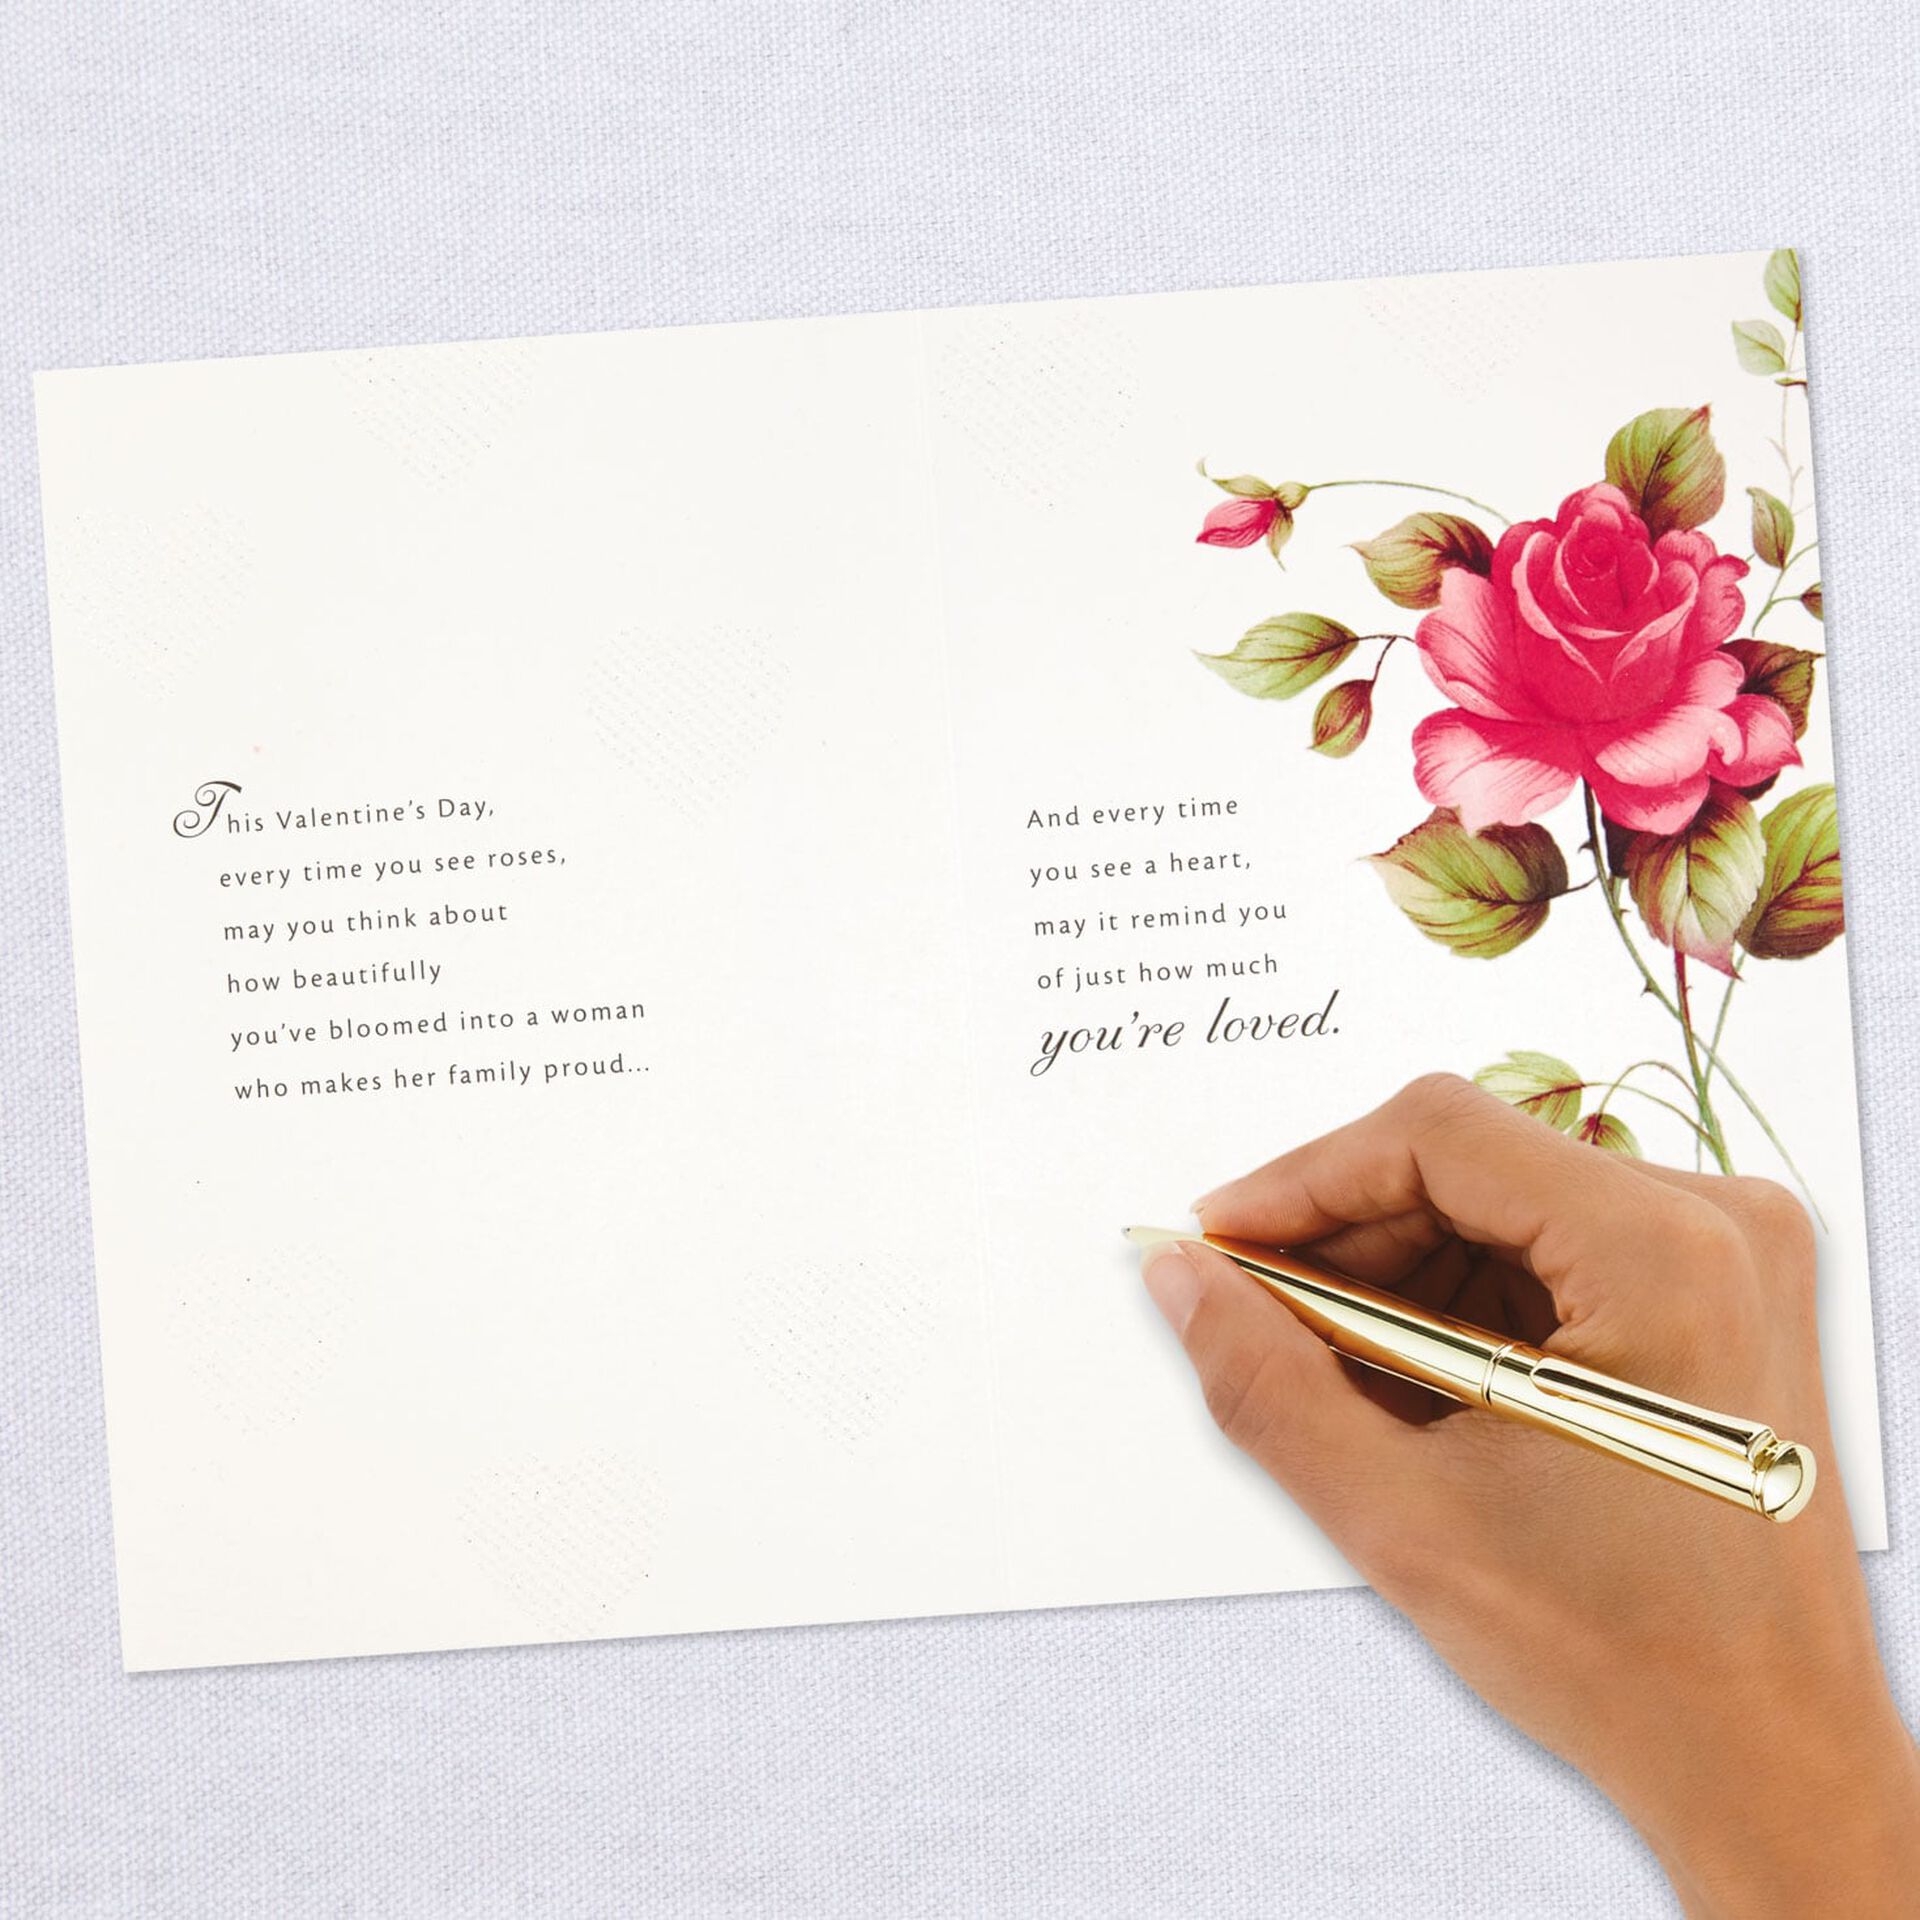 This Valentine's Day,
every time you see roses,
may you think about
how beautifully
you've bloomed into a woman
who makes her family proud...
And every time
you see a heart,
may it remind you
of just how much
you're loved.